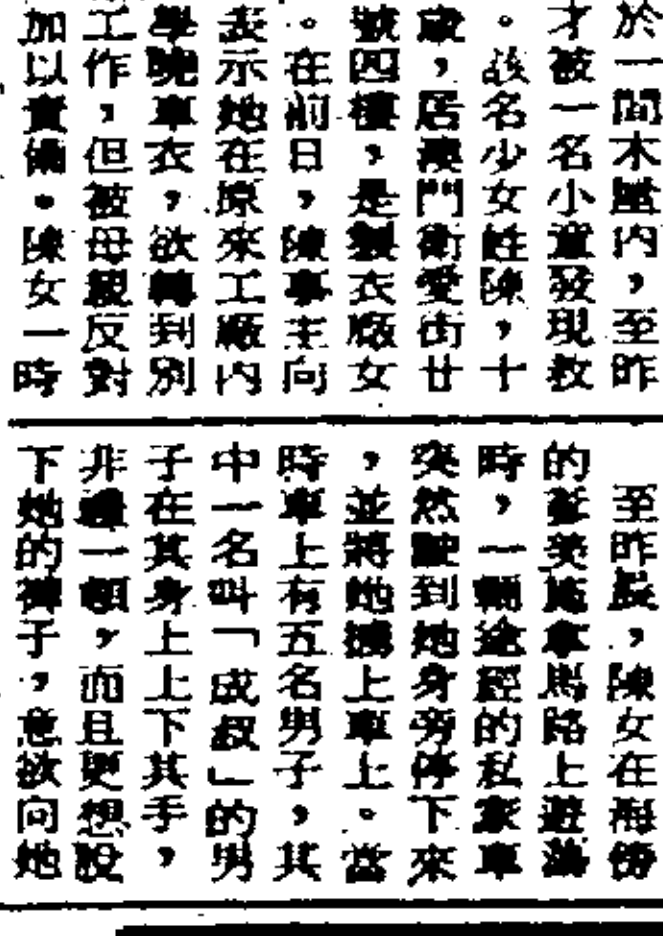 於一間木屋內，至昨
才被一名小童發現救
。該名少女姓陳，十
歲，居澳門衛愛街廿
號四樓，是製衣廠女
。在前日，陳事主向
表示她在原來工廠內
學曉車衣，欲轉到別
工作，但被母親反對
加以責備。陳女一時
至昨晨，陳女在海傍
的美車馬路上遊蕩
時，一輛途經的私家車
突然駛到她身旁停下來
，並將她擄上車上。當
時車上有五名男子，其
中一名叫「成叔」的男
子在其身上上下其手，
非禮一頓，而且更想設
下她的褲子，意欲向她